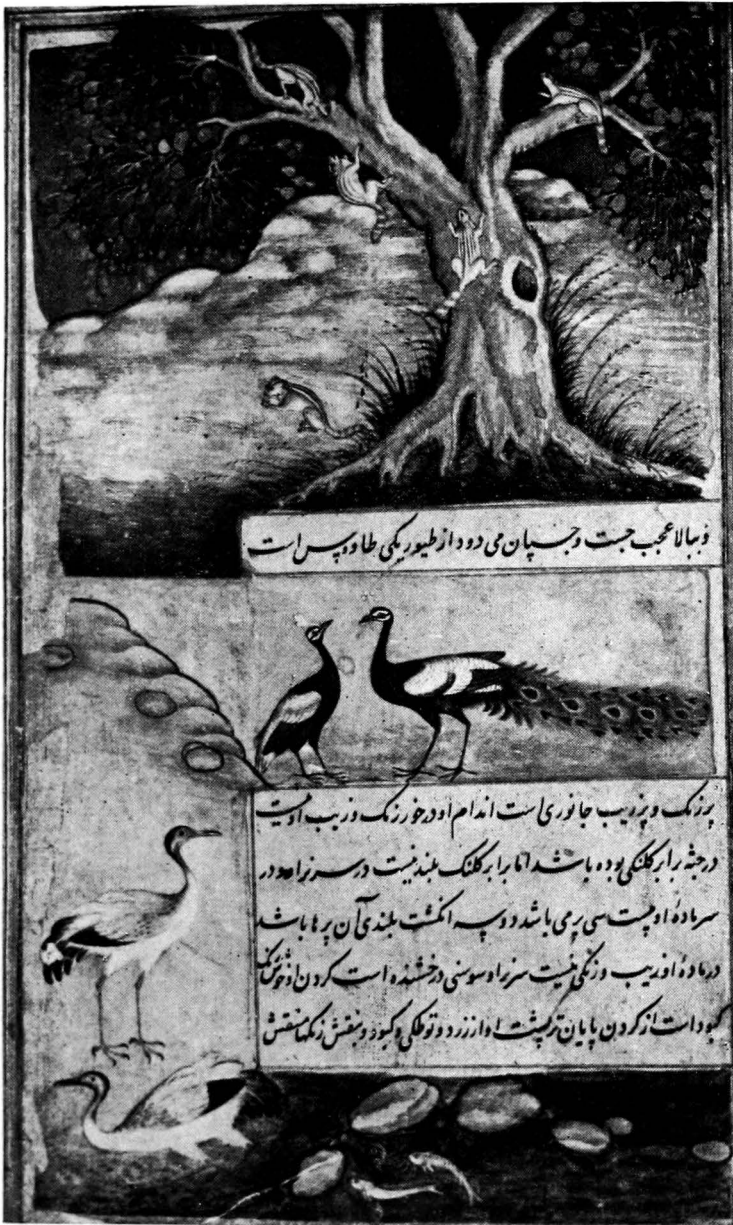 و ببالا عجب جست و جسپان می دود از طیور یکی طاووس است
پرزنک و پرزیب جانوری است اندام او درخور زنک و زیب او نیست
در جثه برابر کلنکی بوده باشد اما برابر کلنک بلند نیست در سر نر او و در
سر مادهٔ او بیست سی پر می باشد دو سه انکشت بلندی آن پرها باشد
در مادهٔ او زیب و رنکی نیست سر نر او سوسنی درخشنده است کردن او خوش
کبود است از کردن پایان تر پشت او از زرد و توطکی و کبود و بنفش رنکها منقش